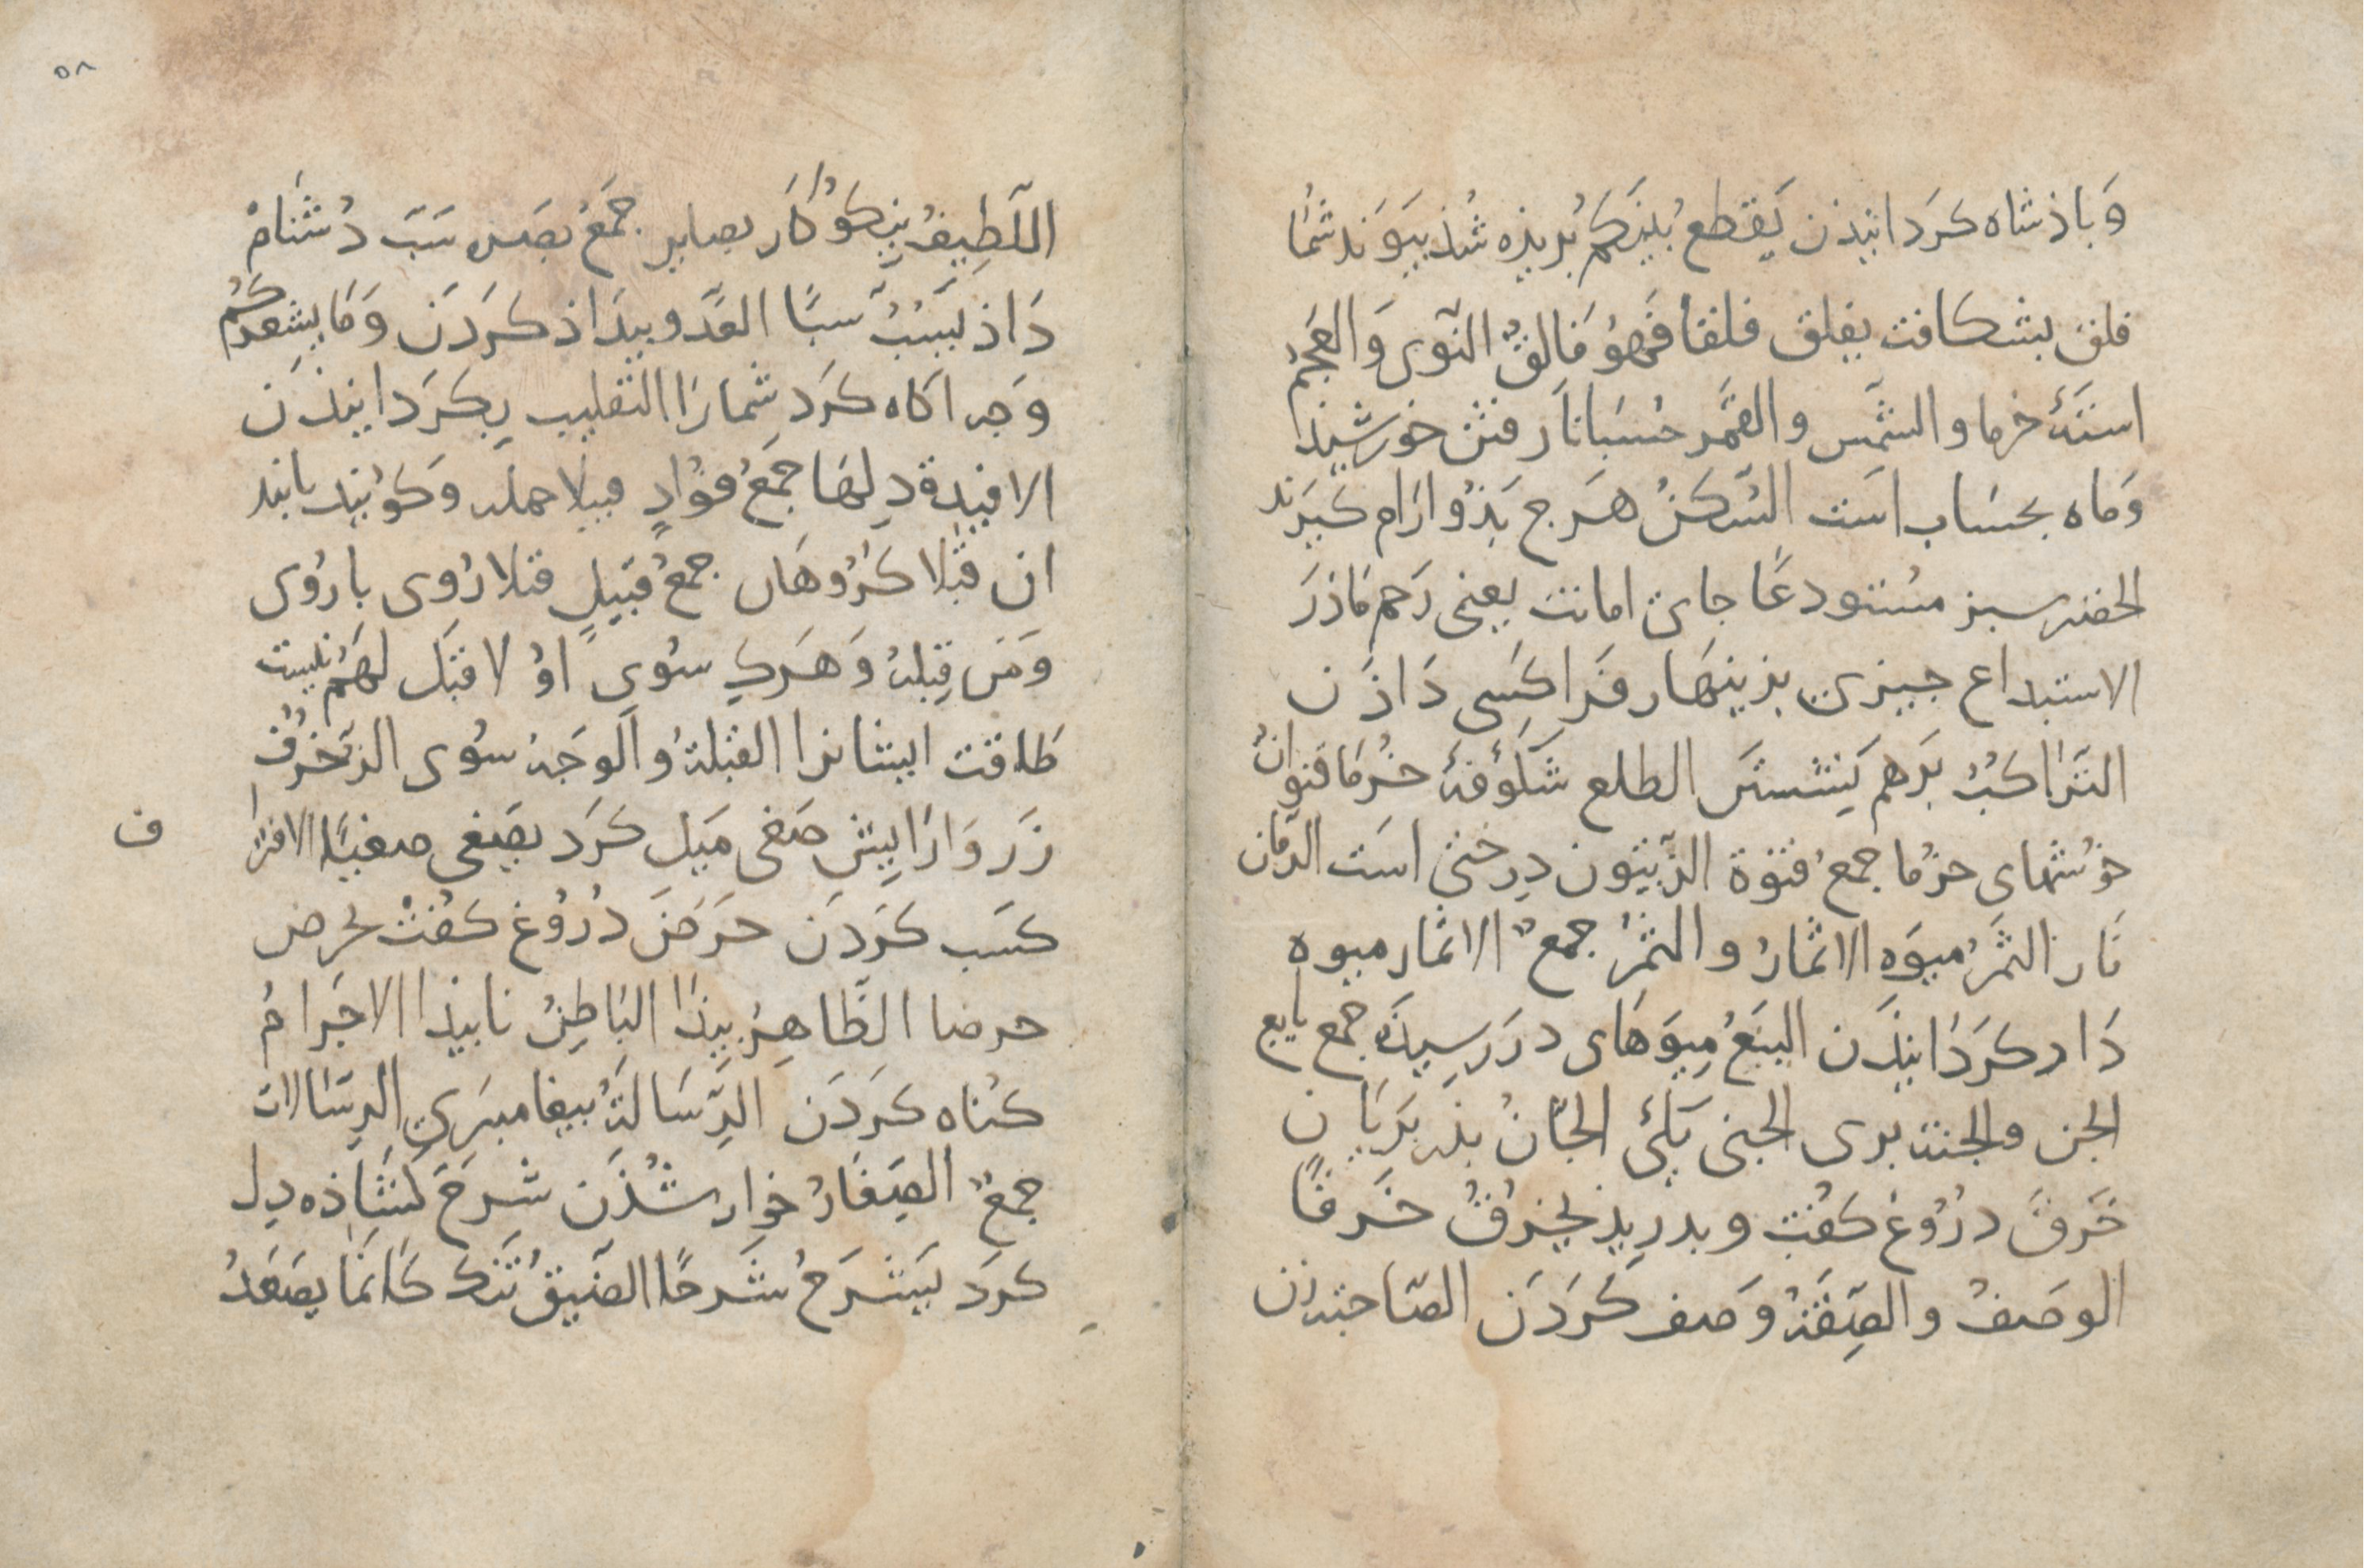 وَبَاذشاه كرَدانیِذن یَقطع بَیْنَكم بُریذه شُذ پیوَند شُما
فلق بشكافت یفلق فلقا فَهوُ فَالقٌ النَّوى وَالعَجَمُ
استَهٔ خرما والشَّمس والقَمَر حُسَبانا رفتن خورشیذ
وَماه بحسَاب است السَّكنُ هرَج بَذو ارَام كیَرند
الخضر سبز مسُتودعًا جاىِ امانت یعنی رَحم مَاذرَ
الاستیداع جیزى بزینهَار فرَا كسَى دَاذن
التَرَاكبُ بَرهم نِشستَن الطلع شَكوُفهٔ خُرمَا قنوانٌ
خوُشَهاى خرُما جمعُ قنوَة الزَیتون دِرختیِ است الرمّان
نَار الثمَرُ میوَه الاثمارُ و الثمرُ جمعٌ الاثمار میوه
دَار كرَدانیذَن الینَعُ مِیوَهَاى دررَسیِذه جمع یانِع
الجن والجنت برى الجنی یَكىَ الجَانُ بذر پَریَان
خَرقَ دروُغ كفُت و بدریِذ یخرقُ خَرقًا
الوصَفُ والصِفَةُ وَصف كَردَن الصّاحبة زن
٥٨
اللَطِیفُ نیِكوُكَار بصایر جمَعُ بصَیرت سَبّ دُشنَامْ
دَاذ یَسُبُّ سبًّا العَدو بیدَاذ كرَدَن وَمَا یشعركُم
وَجه اكاه كرَد شمارَا التقلیب بكرَدانیذَن
الافئِدة دِلهَا جمَعُ فؤُادٍ قبلا جمله وَكوُیند بابتد
ان قبُلا كرُوهَاى جمعُ قَبیِلٍ قبَلا رُوى با رُوى
وَمنَ قِبلهُ وَهَركِ سوُىِ اوُ لا قبَل لهَمُ نیست
طَاقت ایشانرا القبلةُ والوجَهُ سوُى الزخرُفُ
زَر وَارَایِش صَغى مَیل كرَد یصَغى صغیًا الاقترا
كسَب كرَدَن خرَصَ دُروُغ كفُتْ یخرص
خرصا الظَّاهِرُ بیذَا البَاطِنُ نابیذا الاجَرامُ
كنُاه كرَدَن الرِّسَالةُ بیغامبَرىِ الرسَالات
جمعٌ الصَغَارُ خوار شُذَن شَرحَ كشَاذه دِل
كرَد یَشرَحُ شَرحًا الضَّیقُ تَنك كَانَمَا یصَعَدُ
ف